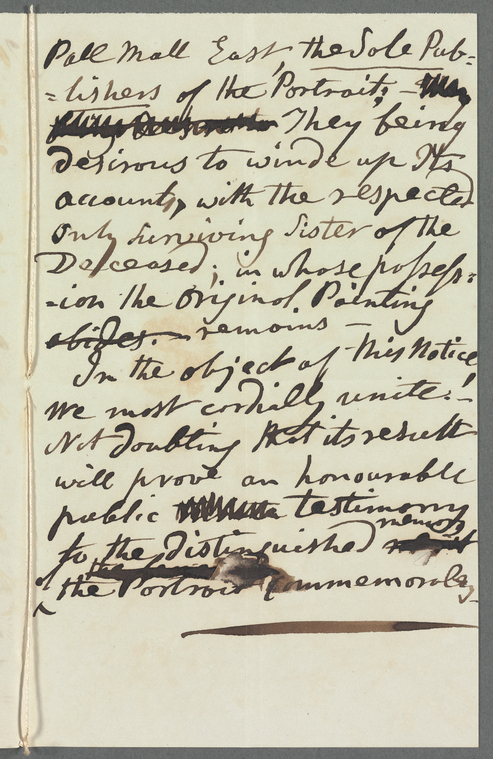 Pall Mall East, the Sole Pub-
=lishers of the Portrait; –
They being
desirous to winde up Its
accounts, with the respected
only surviving Sister of the
Deceased; in whose possess=
=ion the Original Painting
abides. – remains –
In the object of this Notice
we most cordially unite! –
Not doubting that its result
will prove an honourable
public testimony
to the distinguished memory
of
the Portrait Commemorates